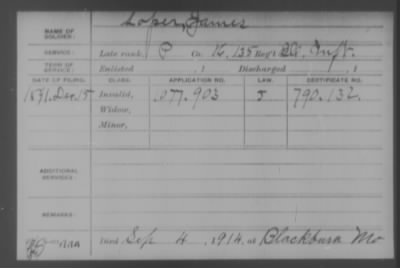 NAME OF SOLDIER: Loper, James
SERVICE: Late rank, P Co. K, 135 Reg't Ill. Inft.
TERM OF SERVICE: Enlisted , 1 Discharged , 1
DATE OF FILING. CLASS. APPLICATION NO. LAW. CERTIFICATE NO.
1891, Dec. 15 Invalid, 1077.903 J 790.132.
Widow,
Minor,
ADDITIONAL SERVICES:
REMARKS:
Died Sep 4, 1914, at Blackburn Mo